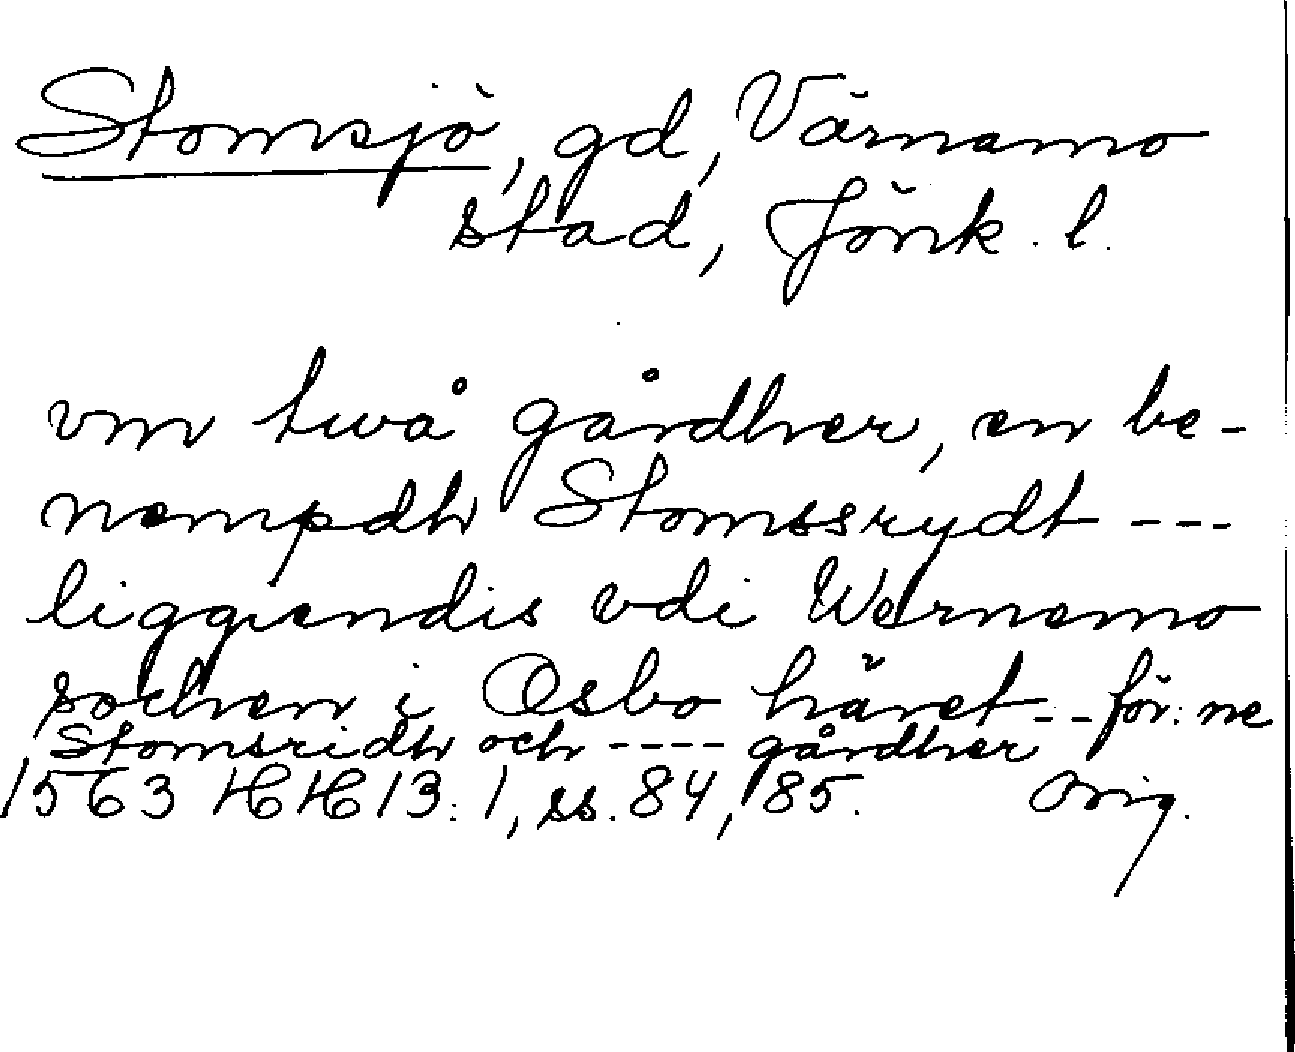 Stomsjö, gd, Värnamo
stad, Jönk. l.
vm twå gårdher, en be-
nempdh Stomssrydt ---
liggiendis vdi Wernemo
sochen i Osbo häret -- för:ne
Stomsridh och ---- gårdher
1563 HH 13:1, ss. 84, 85. Orig.